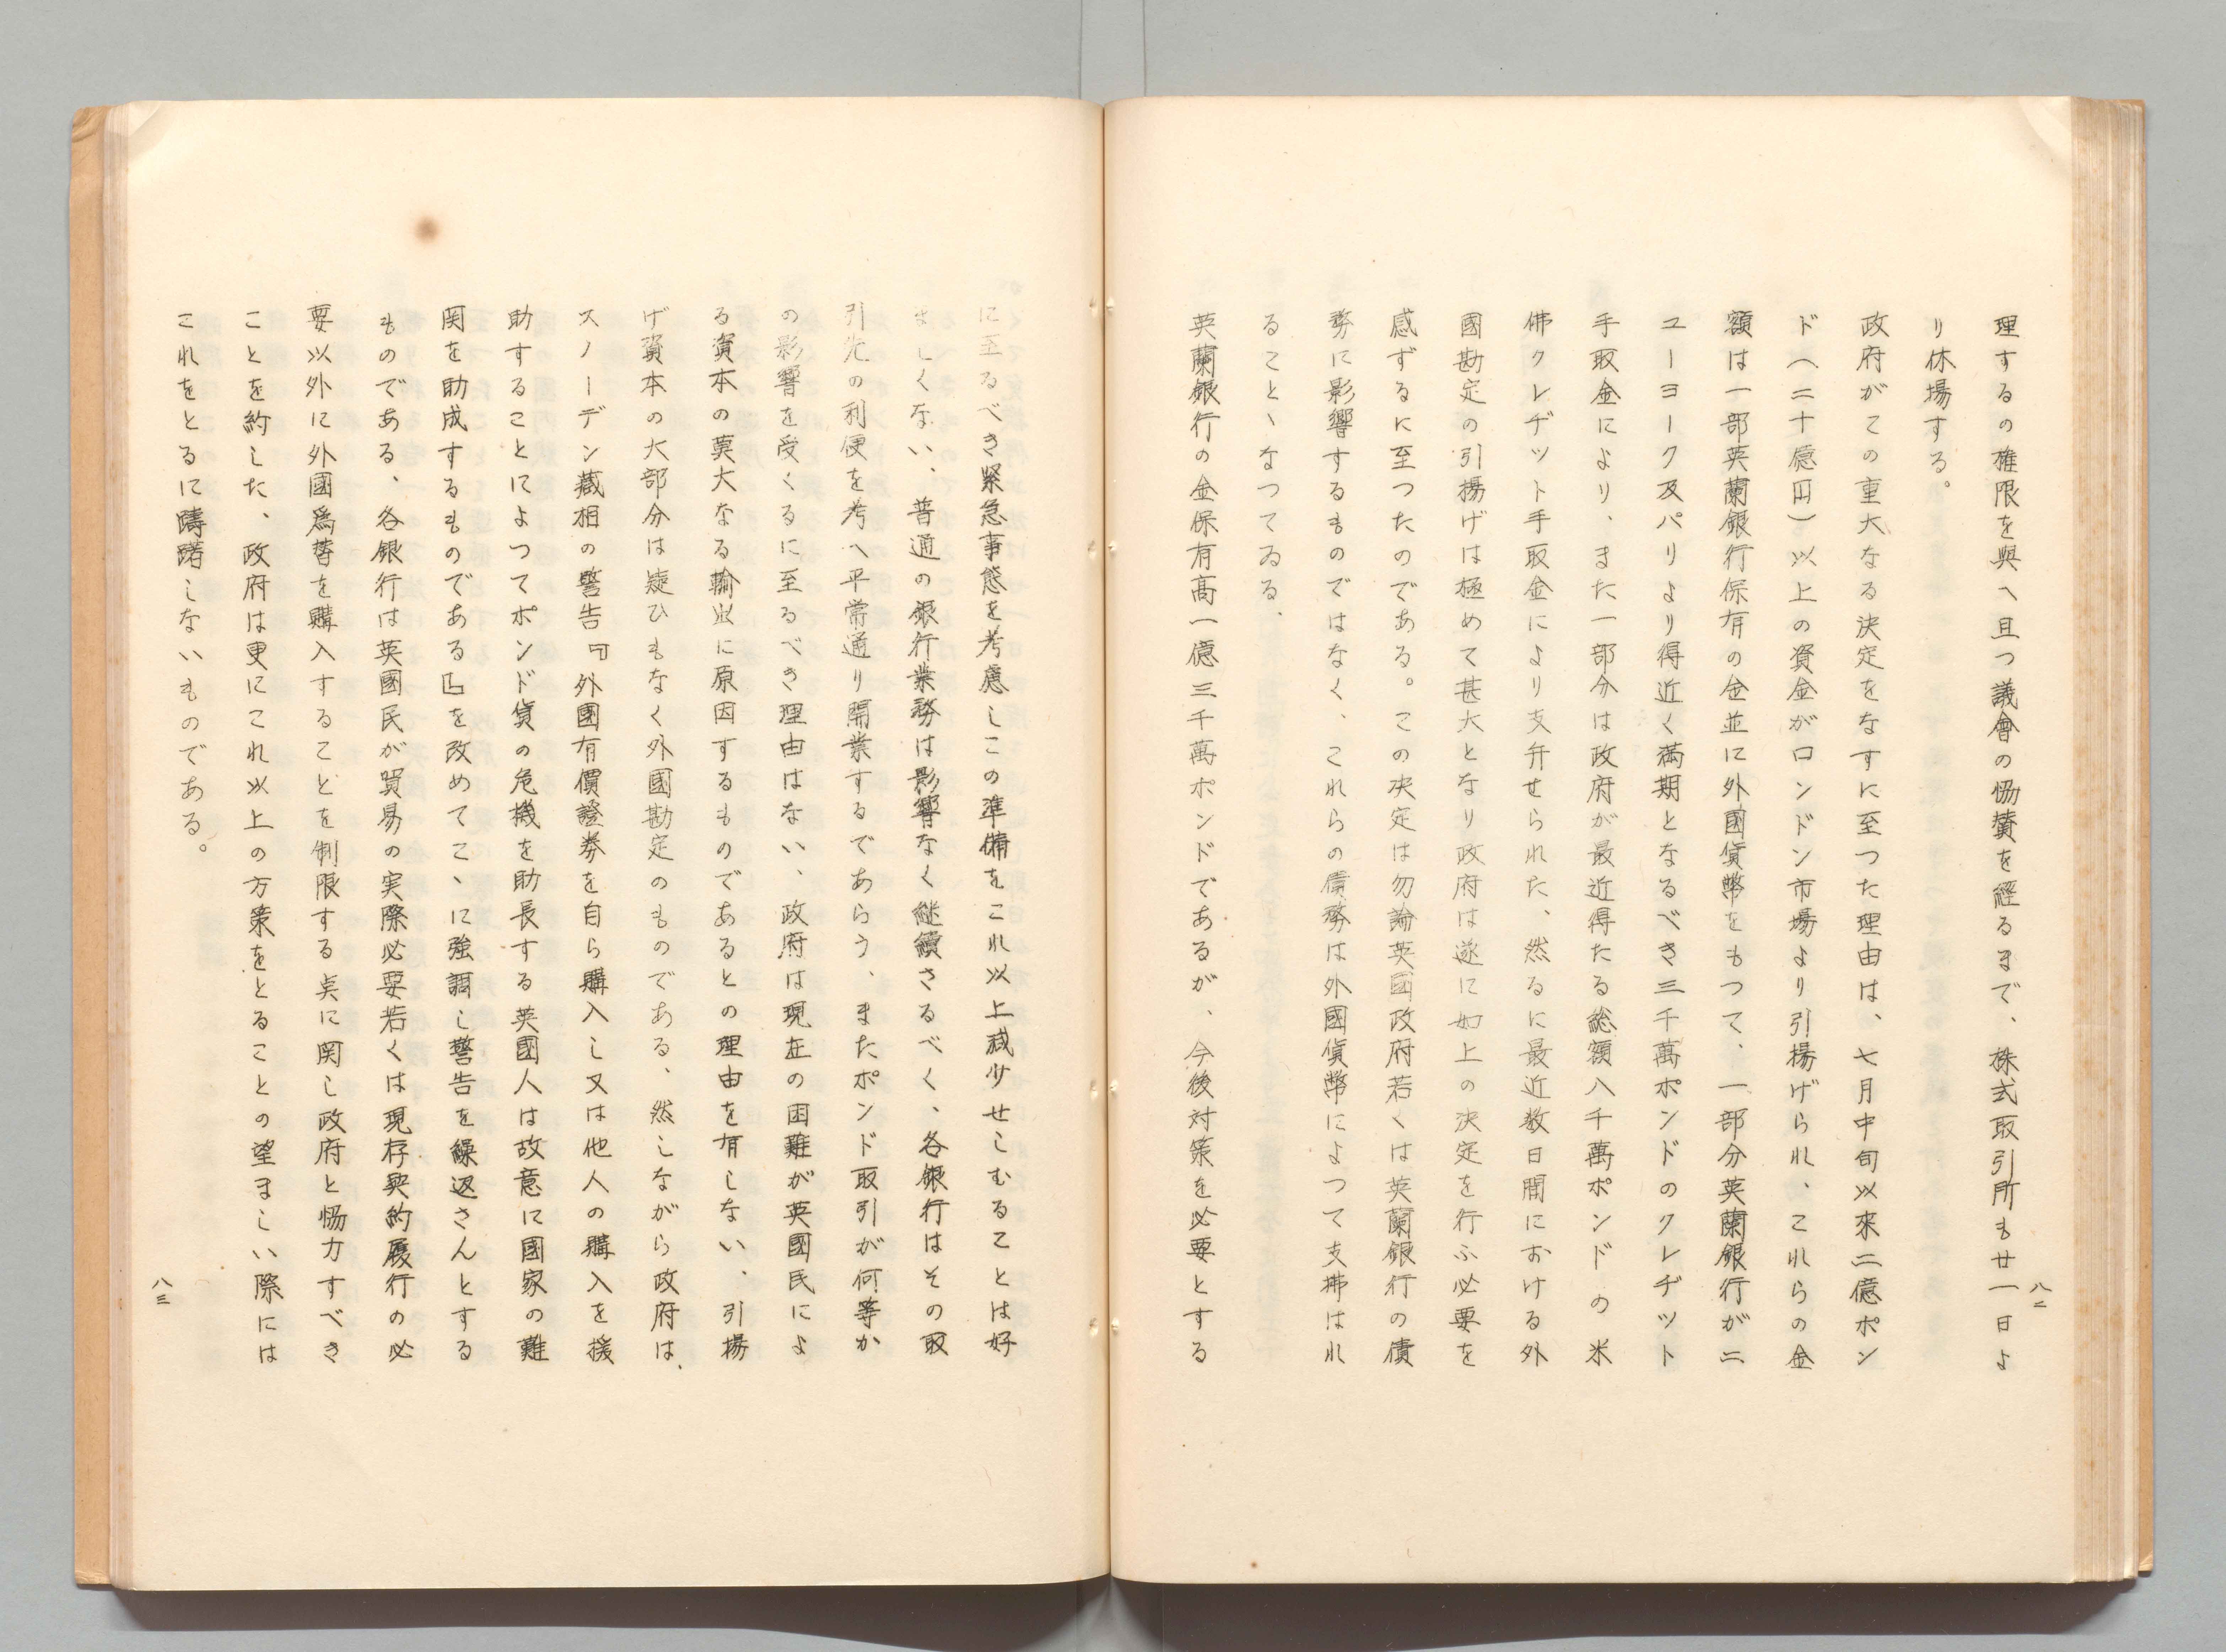 八二
理するの権限を與へ且つ議會の協賛を經るまで、株式取引所も廿一日よ
り休場する。
政府がこの重大なる決定をなすに至つた理由は、七月中旬以來二億ポン
ド（二十億円）以上の資金がロンドン市場より引揚げられ、これらの金
額は一部英蘭銀行保有の金並に外國貨幣をもつて、一部分英蘭銀行が二
ユーヨーク及パリより得近く満期となるべき三千萬ポンドのクレヂット
手取金により、また一部分は政府が最近得たる総額八千萬ポンドの米
佛クレヂット手取金により支弁せられた、然るに最近数日間における外
國勘定の引揚げは極めて甚大となり政府は遂に如上の決定を行ふ必要を
感ずるに至つたのである。この決定は勿論英國政府若くは英蘭銀行の債
務に影響するものではなく、これらの債務は外國貨幣によつて支拂はれ
ることゝなつてゐる、
英蘭銀行の金保有高一億三千萬ポンドであるが、今後対策を必要とする
に至るべき緊急事態を考慮しこの準備をこれ以上減少せしむることは好
ましくない、普通の銀行業務は影響なく継續さるべく、各銀行はその取
引先の利便を考へ平常通り開業するであらう、またポンド取引が何等か
の影響を受くるに至るべき理由はない、政府は現在の困難が英國民によ
る資本の莫大なる輸出に原因するものであるとの理由を有しない、引揚
げ資本の大部分は疑ひもなく外國勘定のものである、然しながら政府は、
スノーデン藏相の警告『外國有價證券を自ら購入し又は他人の購入を援
助することによつてポンド貨の危機を助長する英國人は故意に國家の難
関を助成するものである』を改めてこゝに強調し警告を繰返さんとする
ものである、各銀行は英國民が貿易の実際必要若くは現存契約履行の必
要以外に外國爲替を購入することを制限する点に関し政府と協力すべき
ことを約した、政府は更にこれ以上の方策をとることの望ましい際には
これをとるに躊躇しないものである。
八三